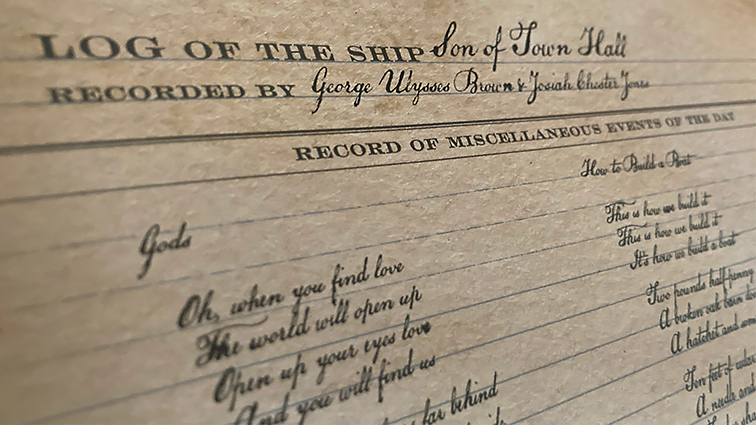 LOG OF THE SHIP Son of Town Hall
RECORDED BY George Ulysses Brown & Josiah Chester Jones
RECORD OF MISCELLANEOUS EVENTS OF THE DAY
Gods
Oh, when you find love
The world will open up
Open up your eyes love
And you will find us
far behind
How to Build a Boat
This is how we build it
This is how we build it
It's how we build a boat
Two pounds half-penny
A broken oak
A hatchet and
Ten feet of
A needle and